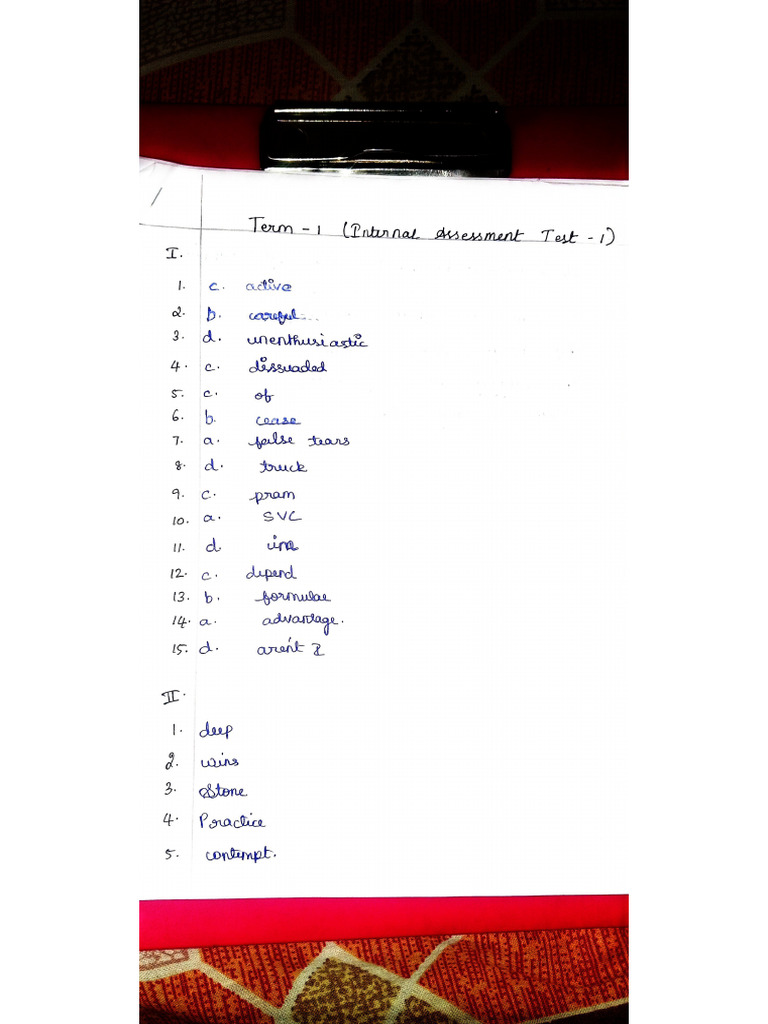 Term - 1 (Internal Assessment Test - 1)
I.
1. c. active
2. b. careful...
3. d. unenthusiastic
4. c. dissuaded
5. c. of
6. b. cease
7. a. false tears
8. d. truck
9. c. pram
10. a. SVC
11. d.
12. c. depend
13. b. formulae
14. a. advantage.
15. d. aren't I
II.
1. deep
2. wins
3. Stone
4. Practice
5. contempt.